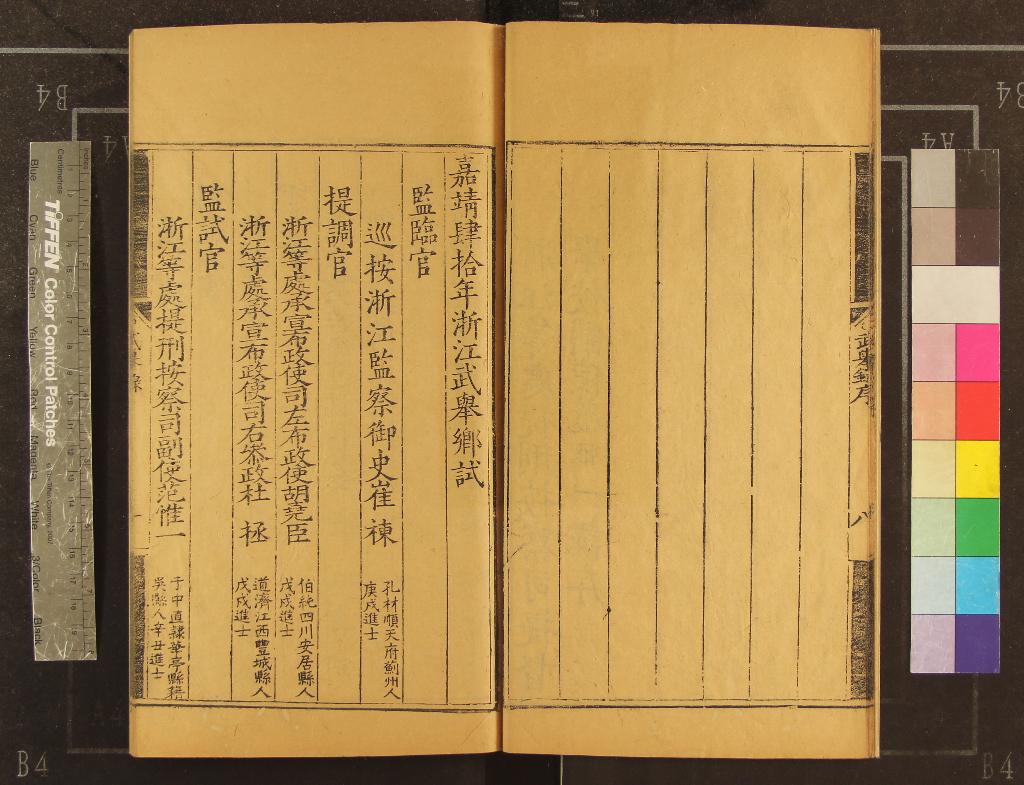 武舉錄序
八
嘉靖肆拾年浙江武舉鄉試
監臨官
巡按浙江監察御史崔 棟 孔材順天府薊州人
庚戌進士
提調官
浙江等處承宣布政使司左布政使胡堯臣 伯純四川安居縣人
戊戌進士
浙江等處承宣布政使司右參政杜 拯 道濟江西豐城縣人
戊戌進士
監試官
浙江等處提刑按察司副使范惟一 于中直隸華亭縣籍
吳縣人辛丑進士
B4
B4
B4
B4
A4
A4
TIFFEN Color Control Patches
Centimetres
Inches
Blue
Cyan
Green
Yellow
Red
Magenta
White
3/Color
Black